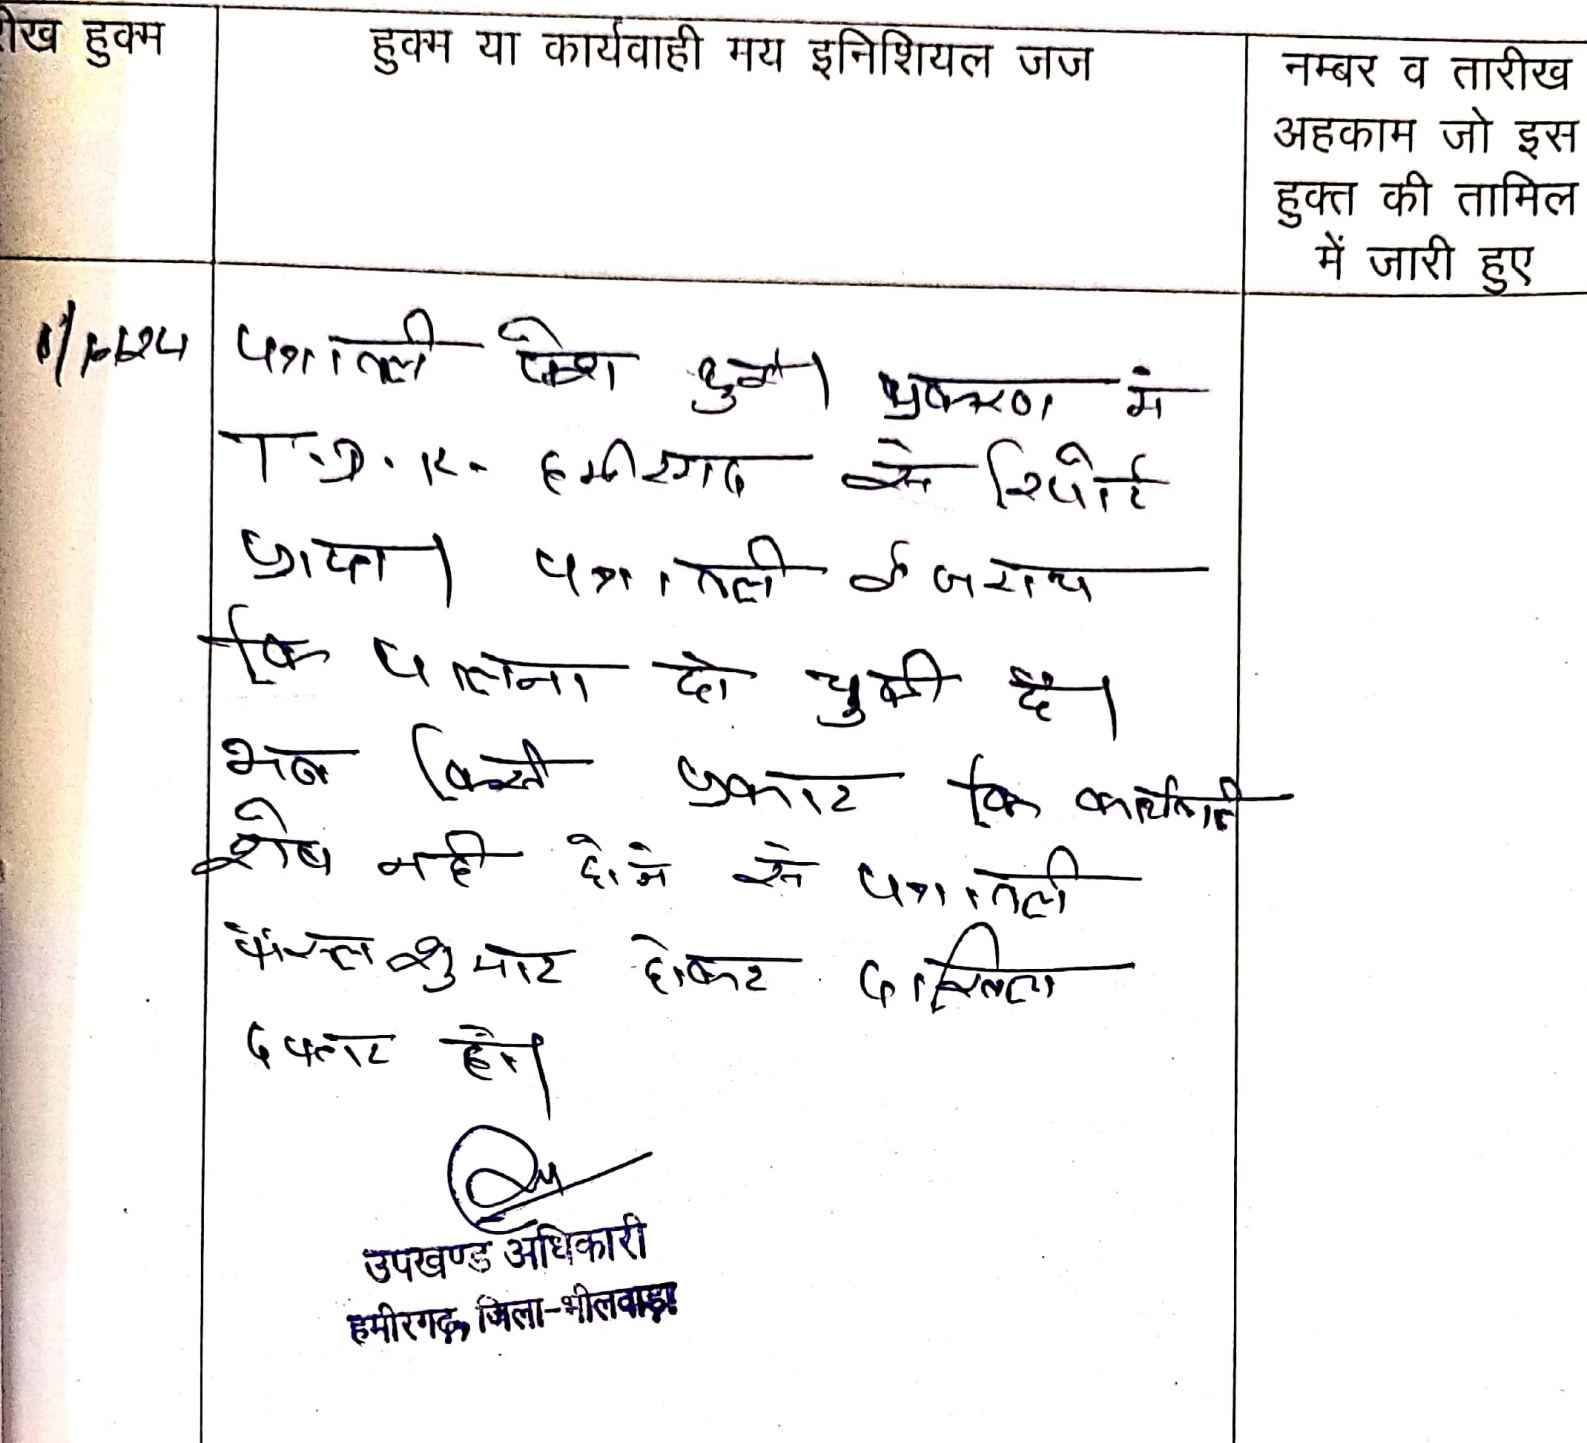 रीख हुक्म
हुक्म या कार्यवाही मय इनिशियल जज
नम्बर व तारीख
अहकाम जो इस
हुक्त की तामिल
में जारी हुए
पत्रावली पेश हुई। प्रकरण में
T.D.R. हमीरगढ से रिपोर्ट
प्राप्त। पत्रावली में
कि पालना हो चुकी है।
अब किसी प्रकार कि कार्यवाही
शेष नही होने से पत्रावली
फैसल शुमार होकर दाखिल
दफ्तार हो।
उपखण्ड अधिकारी
हमीरगढ़ जिला-भीलवाड़ा